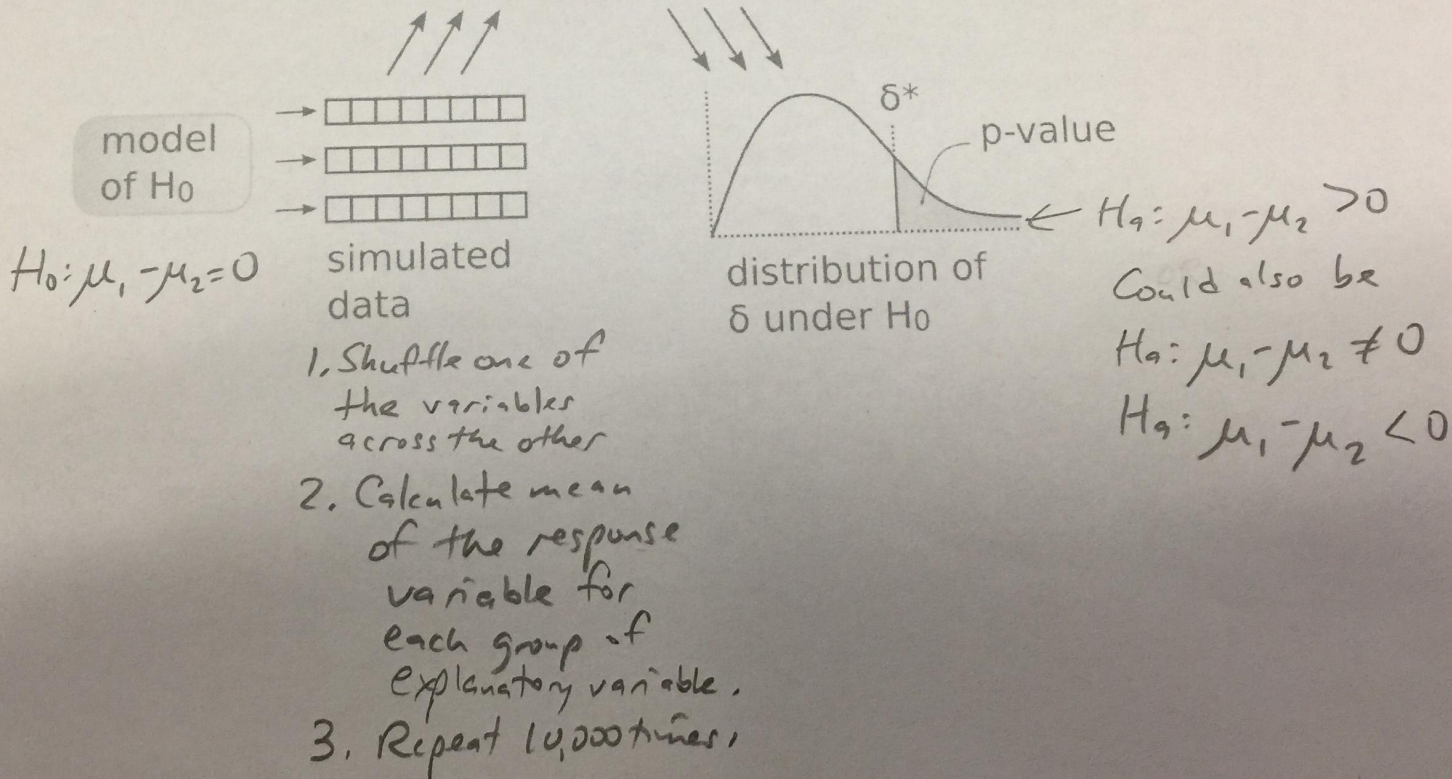 model
of H₀
H₀: μ₁ - μ₂ = 0
simulated
data
1. Shuffle one of
the variables
across the other
2. Calculate mean
of the response
variable for
each group of
explanatory variable.
3. Repeat 10,000 times.
δ*
p-value
distribution of
δ under H₀
Hₐ: μ₁ - μ₂ > 0
Could also be
Hₐ: μ₁ - μ₂ ≠ 0
Hₐ: μ₁ - μ₂ < 0